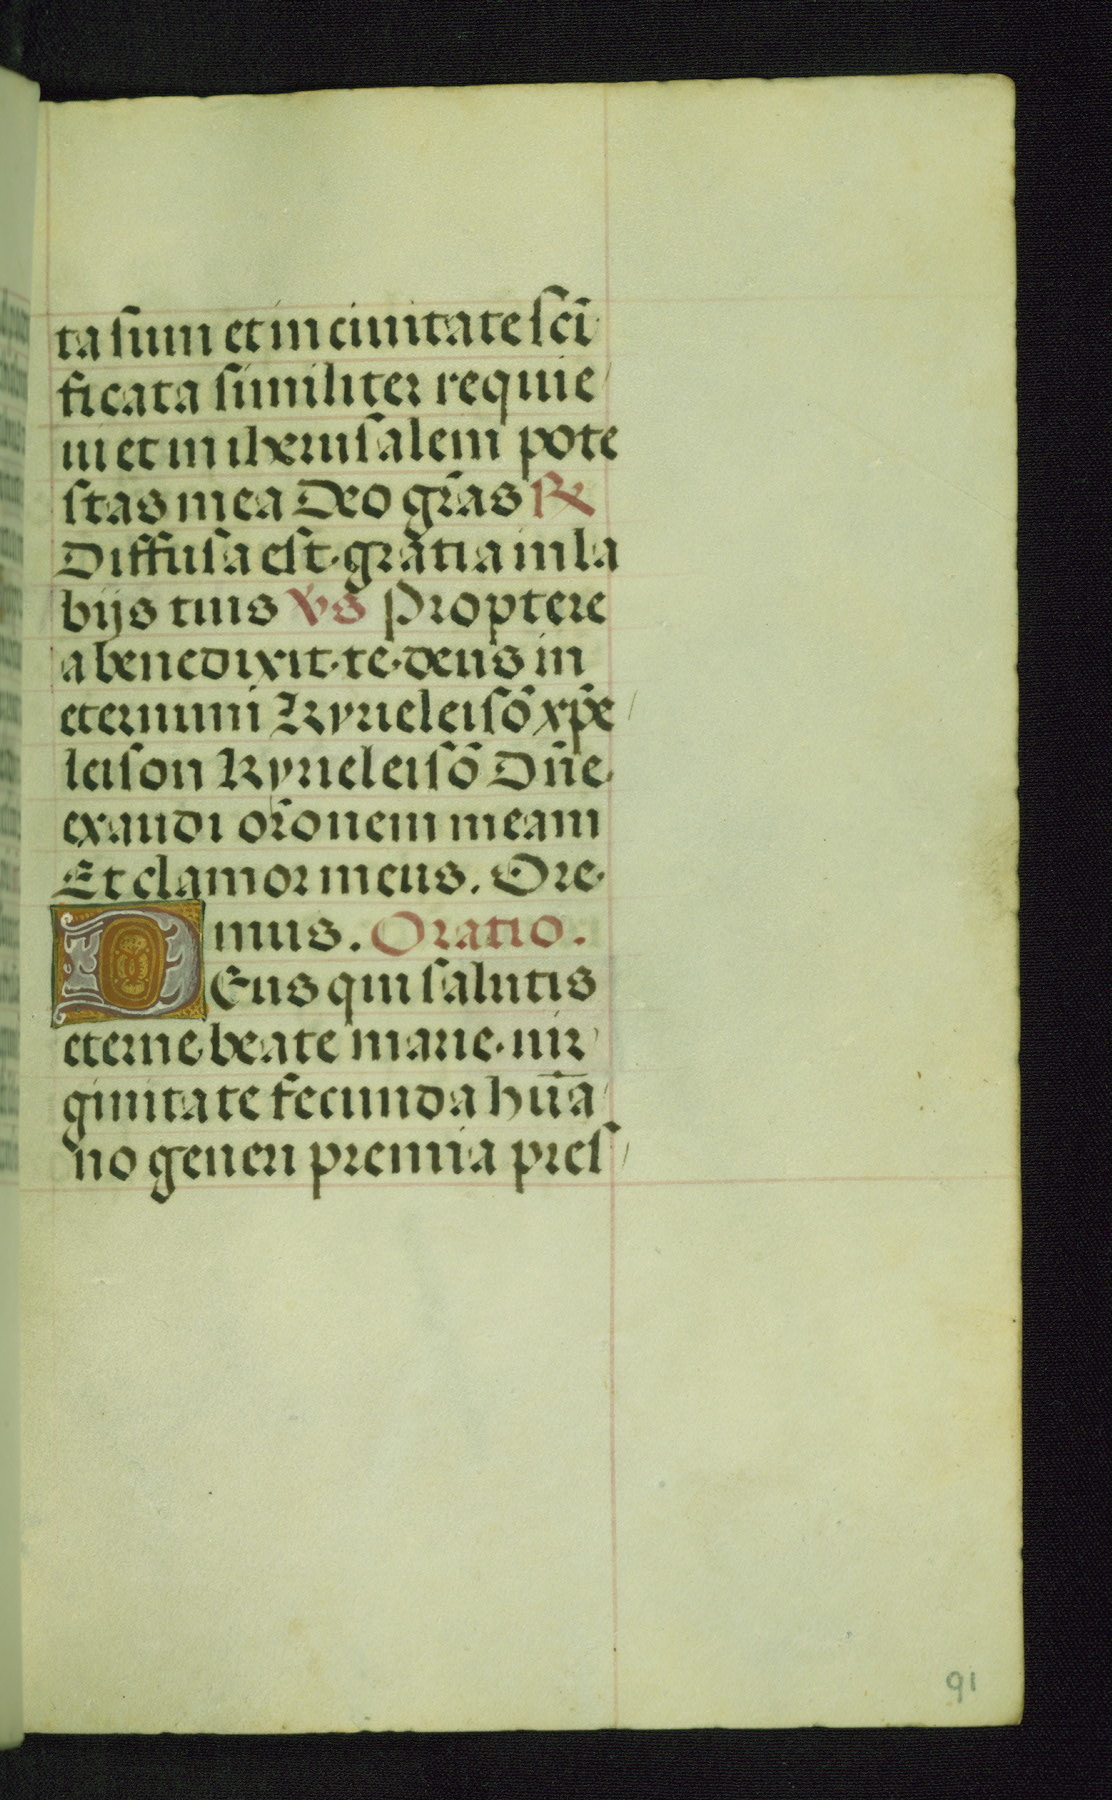 ta sum et in ciuitate sc̄i
ficata similiter requie
ui et in iherusalem pote
stas mea Deo gr̄as ℟
Diffusa est gratia in la
bijs tuis Vs Proptere
a benedixit te deus in
eternum Kyrieleisō xp̄e
leison Kyrieleisō Dn̄e
exaudi or̄onem meam
Et clamor meus. Ore
mus. Oratio.
DEus qui salutis
eterne beate marie uir
ginitate fecunda hūa
no generi premia pres
91